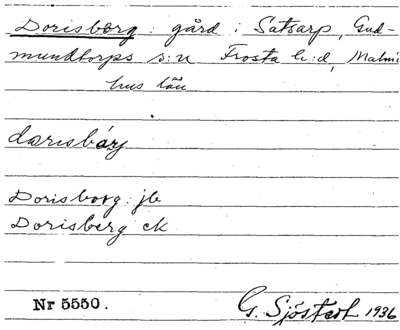 Dorisberg: gård i Satsarp, Gud-
mundtorps s:n Frosta h:d, Malmö
hus län
dorisbärj
Dorisborg: jb
Dorisberg ck
Nr 5550. G. Sjöstedt 1936